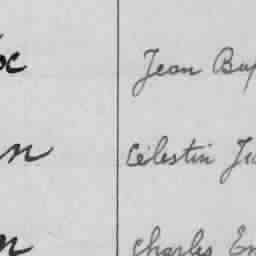 oc Jean Bap
n Célestin Ju
n Charles Em